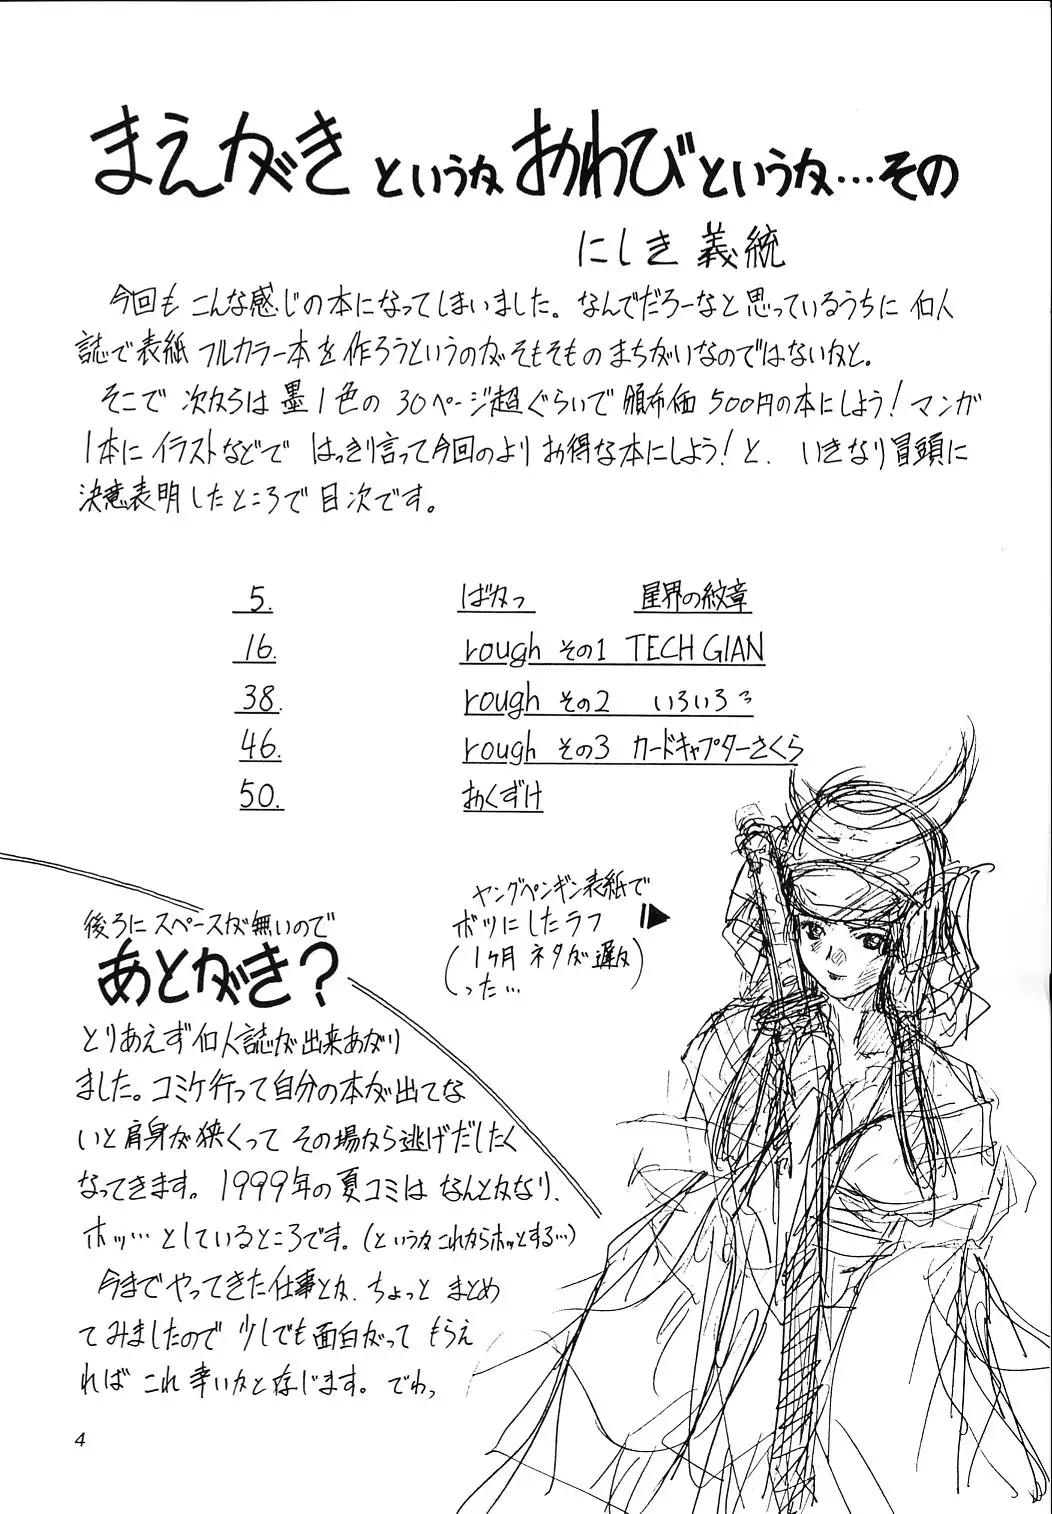 まえがきというかおわびというか…その
にしき義統
今回もこんな感じの本になってしまいました。なんでだろーなと思っているうちに同人
誌で表紙フルカラー本を作ろうというのがそもそものまちがいなのではないかと。
そこで次からは墨1色の30ページ超ぐらいで頒布価500円の本にしよう!マンガ
1本にイラストなどではっきり言って今回のよりお得な本にしよう!と、いきなり冒頭に
決意表明したところで目次です。
5. ばかっ 星界の紋章
16. rough その1 TECH GIAN
38. rough その2 いろいろ
46. rough その3 カードキャプターさくら
50. おくずけ
ヤングペンギン表紙で
ボツにしたラフ
(1ヶ月ネタが遅か
った…)
後ろにスペースが無いので
あとがき?
とりあえず同人誌が出来あがり
ました。コミケ行って自分の本が出てな
いと肩身が狭くってその場から逃げだしたく
なってきます。1999年の夏コミはなんとかなり、
ホッ…としているところです。(というかこれからホッとする…)
今までやってきた仕事とか、ちょっとまとめ
てみましたので少しでも面白がってもらえ
ればこれ幸いかと存じます。でわっ
4